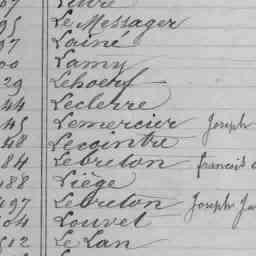 95 Le Messager
97 Lainé
00 Lamy
29 Leboeuf
44 Leclerre
45 Lemercier Joseph
48 Lecointre
84 Lebreton francois
488 Liège
497 Lebreton Joseph
504 Louvet
512 Le Lan